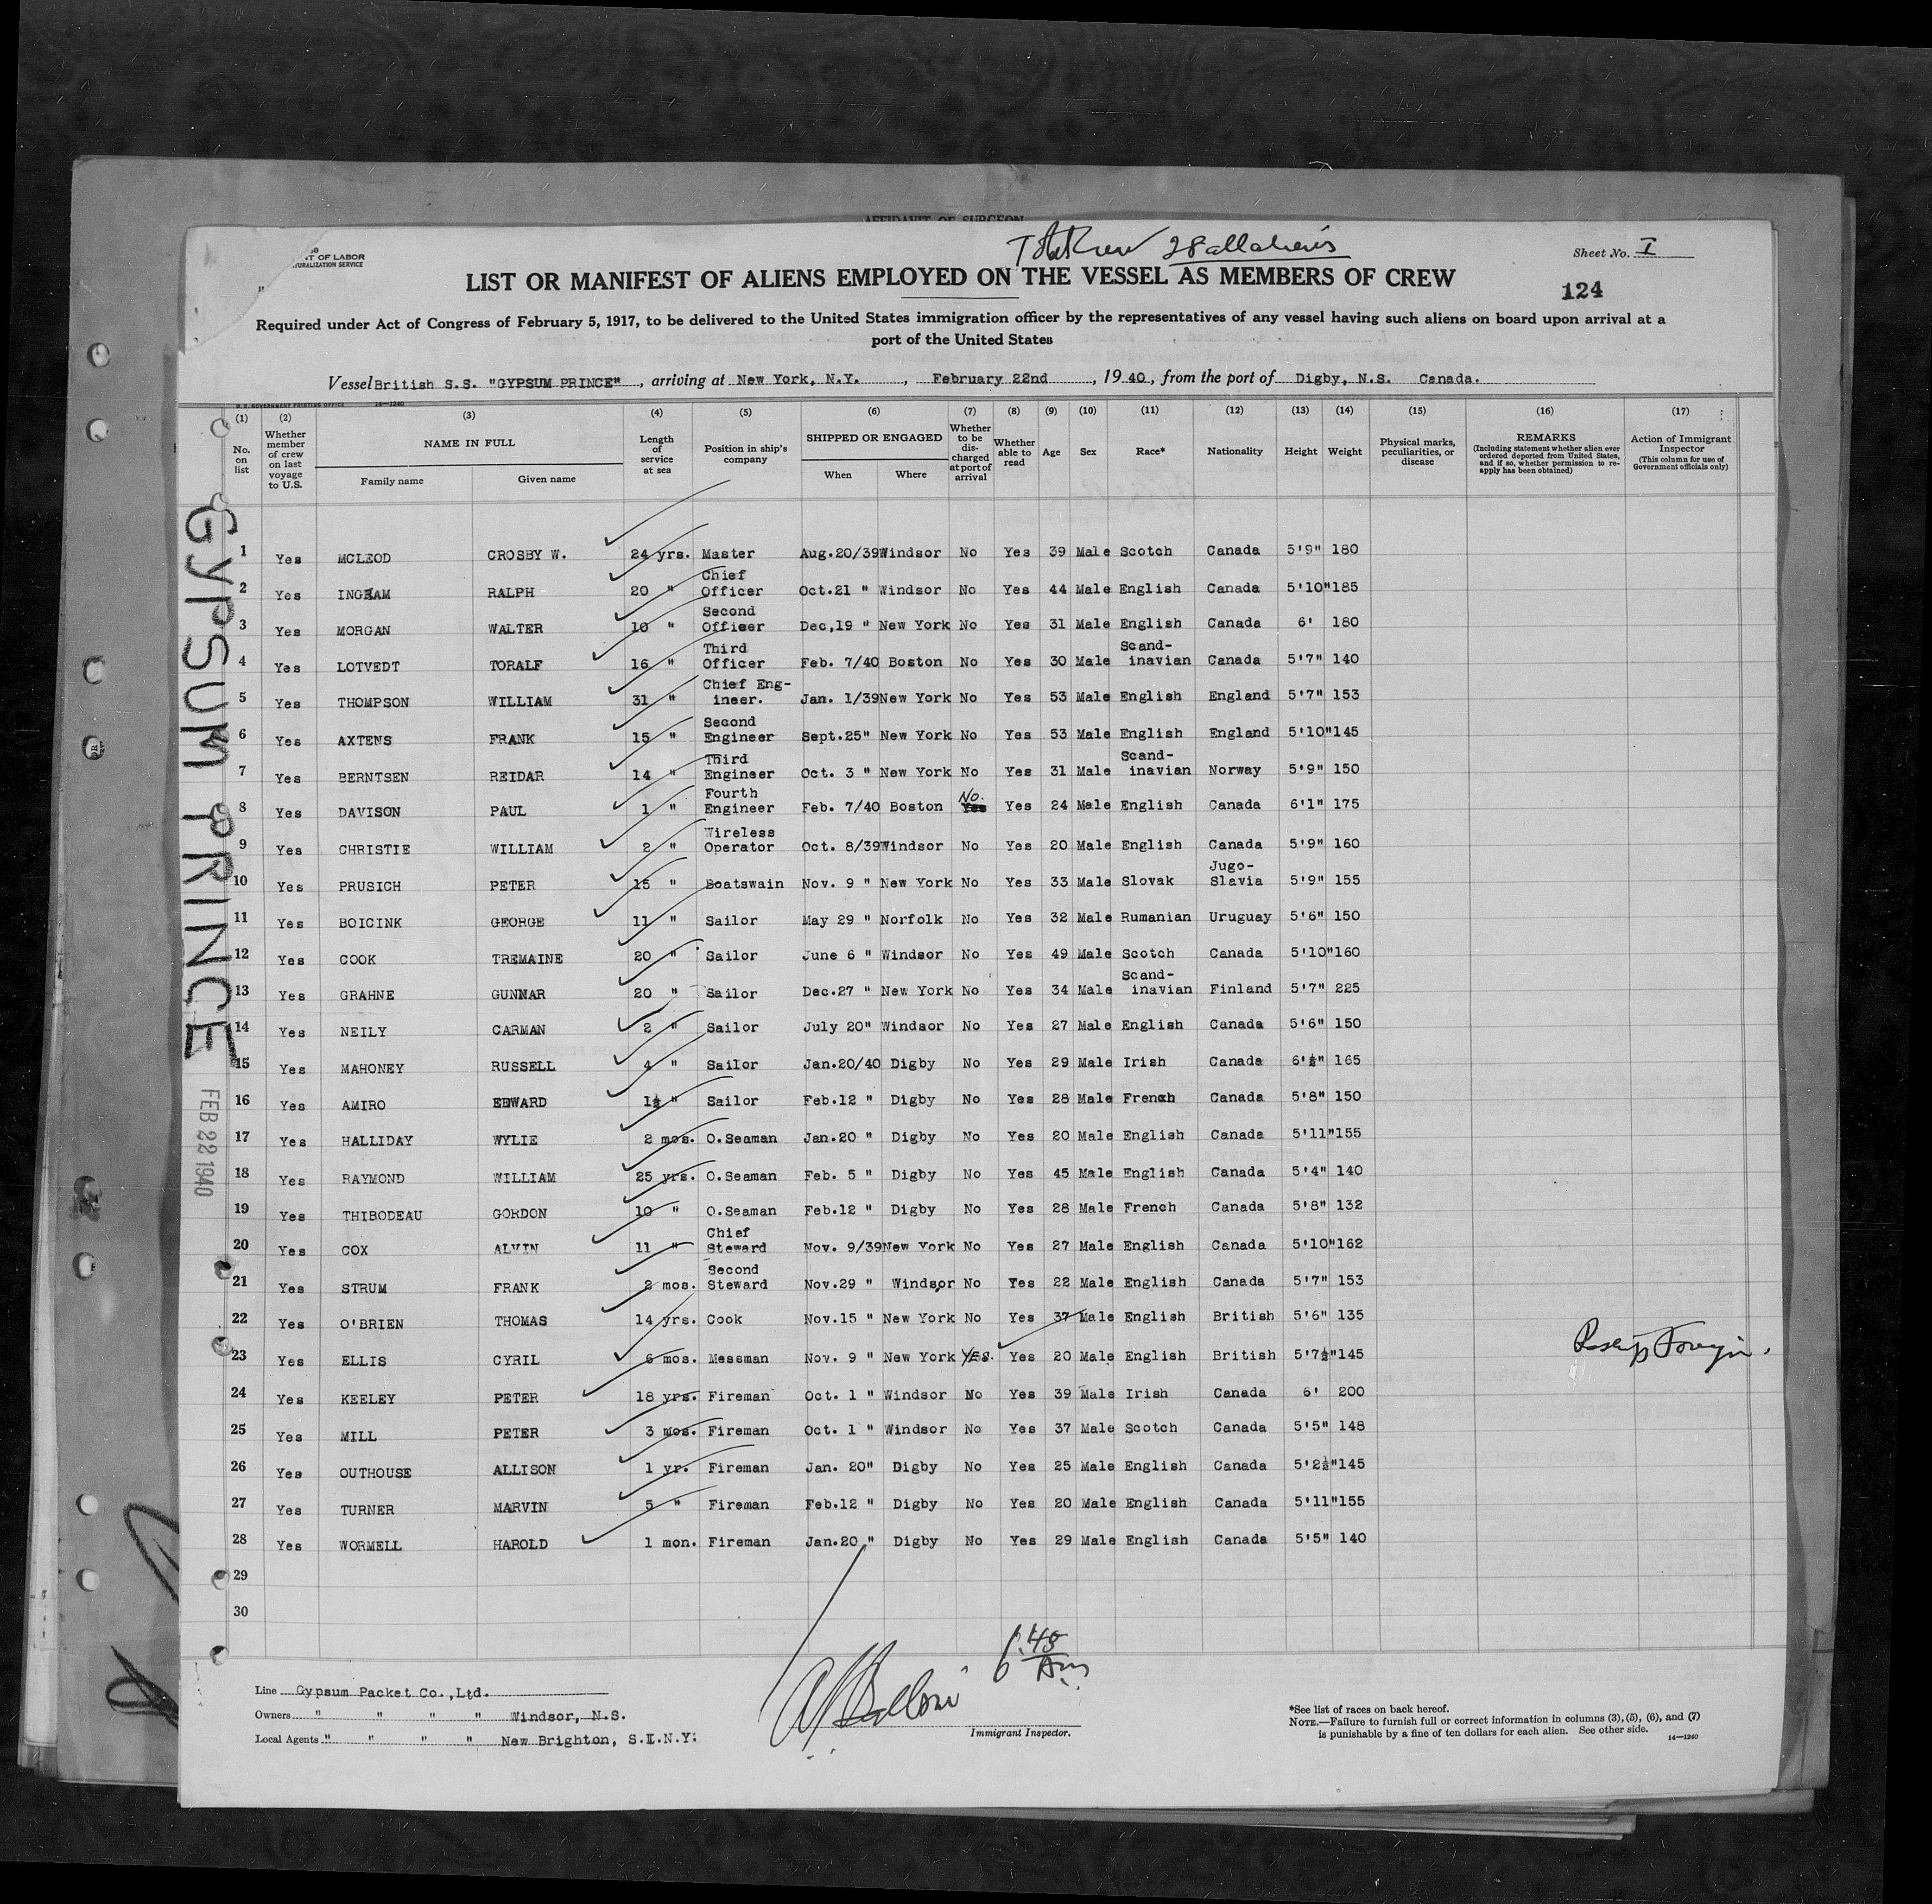 AFFIDAVIT OF SURGEON
Total Crew 28 all aliens
Sheet No. I
NT OF LABOR
TURALIZATION SERVICE
LIST OR MANIFEST OF ALIENS EMPLOYED ON THE VESSEL AS MEMBERS OF CREW
124
Required under Act of Congress of February 5, 1917, to be delivered to the United States immigration officer by the representatives of any vessel having such aliens on board upon arrival at a
port of the United States
Vessel British S.S. "GYPSUM PRINCE", arriving at New York, N.Y., February 22nd, 1940, from the port of Digby, N.S. Canada.
U.S. GOVERNMENT PRINTING OFFICE 14—1240
(1) (2) (3) (4) (5) (6) (7) (8) (9) (10) (11) (12) (13) (14) (15) (16) (17)
No. on list
Whether member of crew on last voyage to U.S.
NAME IN FULL
Family name Given name
Length of service at sea
Position in ship's company
SHIPPED OR ENGAGED
When Where
Whether to be discharged at port of arrival
Whether able to read
Age Sex Race* Nationality Height Weight
Physical marks, peculiarities, or disease
REMARKS
(Including statement whether alien ever ordered deported from United States, and if so, whether permission to reapply has been obtained)
Action of Immigrant Inspector
(This column for use of Government officials only)
GYPSUM PRINCE
FEB 22 1940
1 Yes MCLEOD CROSBY W. 24 yrs. Master Aug.20/39 Windsor No Yes 39 Male Scotch Canada 5'9" 180
2 Yes INGRAM RALPH 20 " Chief Officer Oct.21 " Windsor No Yes 44 Male English Canada 5'10" 185
3 Yes MORGAN WALTER 10 " Second Officer Dec,19 " New York No Yes 31 Male English Canada 6' 180
4 Yes LOTVEDT TORALF 16 " Third Officer Feb. 7/40 Boston No Yes 30 Male Scand-inavian Canada 5'7" 140
5 Yes THOMPSON WILLIAM 31 " Chief Eng-ineer. Jan. 1/39 New York No Yes 53 Male English England 5'7" 153
6 Yes AXTENS FRANK 15 " Second Engineer Sept.25" New York No Yes 53 Male English England 5'10" 145
7 Yes BERNTSEN REIDAR 14 " Third Engineer Oct. 3 " New York No Yes 31 Male Scand-inavian Norway 5'9" 150
8 Yes DAVISON PAUL 1 " Fourth Engineer Feb. 7/40 Boston No. Yes Yes 24 Male English Canada 6'1" 175
9 Yes CHRISTIE WILLIAM 2 " Wireless Operator Oct. 8/39 Windsor No Yes 20 Male English Canada 5'9" 160
10 Yes PRUSICH PETER 15 " Boatswain Nov. 9 " New York No Yes 33 Male Slovak Jugo-Slavia 5'9" 155
11 Yes BOICINK GEORGE 11 " Sailor May 29 " Norfolk No Yes 32 Male Rumanian Uruguay 5'6" 150
12 Yes COOK TREMAINE 20 " Sailor June 6 " Windsor No Yes 49 Male Scotch Canada 5'10" 160
13 Yes GRAHNE GUNNAR 20 " Sailor Dec.27 " New York No Yes 34 Male Scand-inavian Finland 5'7" 225
14 Yes NEILY CARMAN 2 " Sailor July 20" Windsor No Yes 27 Male English Canada 5'6" 150
15 Yes MAHONEY RUSSELL 4 " Sailor Jan.20/40 Digby No Yes 29 Male Irish Canada 6'½" 165
16 Yes AMIRO EDWARD 1½ " Sailor Feb.12 " Digby No Yes 28 Male French Canada 5'8" 150
17 Yes HALLIDAY WYLIE 2 mos. O.Seaman Jan.20 " Digby No Yes 20 Male English Canada 5'11" 155
18 Yes RAYMOND WILLIAM 25 yrs. O.Seaman Feb. 5 " Digby No Yes 45 Male English Canada 5'4" 140
19 Yes THIBODEAU GORDON 10 " O.Seaman Feb.12 " Digby No Yes 28 Male French Canada 5'8" 132
20 Yes COX ALVIN 11 " Chief Steward Nov. 9/39 New York No Yes 27 Male English Canada 5'10" 162
21 Yes STRUM FRANK 2 mos. Second Steward Nov.29 " Windsor No Yes 22 Male English Canada 5'7" 153
22 Yes O'BRIEN THOMAS 14 yrs. Cook Nov.15 " New York No Yes 37 Male English British 5'6" 135
23 Yes ELLIS CYRIL 6 mos. Messman Nov. 9 " New York YES. Yes 20 Male English British 5'7½" 145 Reship Foreign.
24 Yes KEELEY PETER 18 yrs. Fireman Oct. 1 " Windsor No Yes 39 Male Irish Canada 6' 200
25 Yes MILL PETER 3 mos. Fireman Oct. 1 " Windsor No Yes 37 Male Scotch Canada 5'5" 148
26 Yes OUTHOUSE ALLISON 1 yr. Fireman Jan. 20" Digby No Yes 25 Male English Canada 5'2½" 145
27 Yes TURNER MARVIN 5 " Fireman Feb.12 " Digby No Yes 20 Male English Canada 5'11" 155
28 Yes WORMELL HAROLD 1 mon. Fireman Jan.20 " Digby No Yes 29 Male English Canada 5'5" 140
29
30
6.48 Am
Line Gypsum Packet Co.,Ltd.
Owners " " " " Windsor, N.S.
Local Agents " " " " New Brighton, S.I.N.Y.
Immigrant Inspector.
*See list of races on back hereof.
NOTE.—Failure to furnish full or correct information in columns (3), (5), (6), and (7)
is punishable by a fine of ten dollars for each alien. See other side.
14—1240